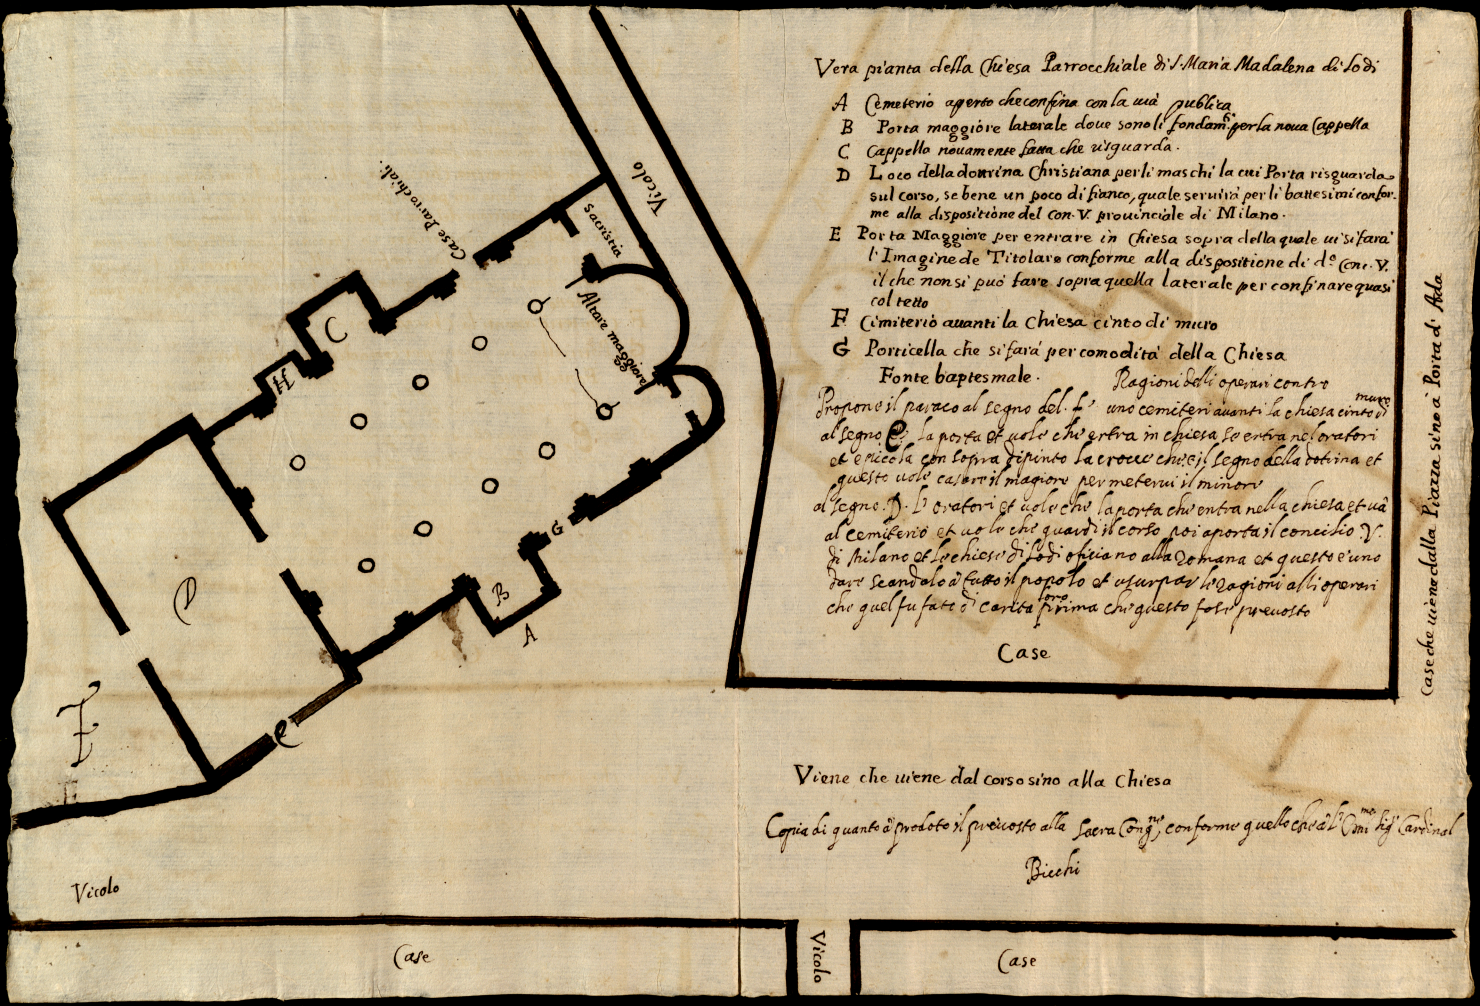 Vera pianta della Chiesa Parrocchiale di S. Maria Madalena di Lodi
A Cemeterio aperto che confina con la uia publica
B Porta maggiore laterale doue sono li fondam.ti per la noua Cappella
C Cappella nouamente fatta che risguarda.
D Loco della dottrina Christiana per li maschi la cui Porta risguarda
sul corso, se bene un poco di fianco, quale seruirà per li battesimi confor-
me alla dispositione del con. V. prouinciale di Milano.
E Porta Maggiore per entrare in Chiesa sopra della quale ui si farà
l'Imagine de Titolare conforme alla dispositione di d.o Conc. V.
il che non si può fare sopra quella laterale per confinare quasi
col tetto
F Cimiterio auanti la Chiesa cinto di muro
G Porticella che si farà per comodità della Chiesa
Fonte baptesmale.
Ragioni delli operari contro
Propone il paraco al segno del. F. uno cemiteri auanti la chiesa cinto di muro
al segno e: la porta et uole che entra in chiesa se entra nel oratori
et è picola con sopra dipinto la croce che è il segno della dotrina et
questo uole casare il magiore per meterui il minore
al segno. D. l'oratori et uole che la porta che entra nella chiesa et uà
al cemiterio et uole che guardi il corso poi aporta il concilio. V.
di Milano et le chiese di Lodi ofitiano alla Romana et questo è uno
dare scandolo à tutto il popolo et usurpar le ragioni alli operari
che quel fu fato di carita loro prima che questo fose preuosto
Case
Case che uiene dalla Piazza sino à Porta d'Ada
Viene che uiene dal corso sino alla Chiesa
Copia di quanto à prodoto il preuosto alla Sacra Cong.ne, conforme quello che à l'Em.mo Sig.r Cardinal
Bicchi
Vicolo
Case Parrochiali.
Sacristia
Altare maggiore
C
H
G
B
A
D
e
F
Vicolo
Case
Vicolo
Case